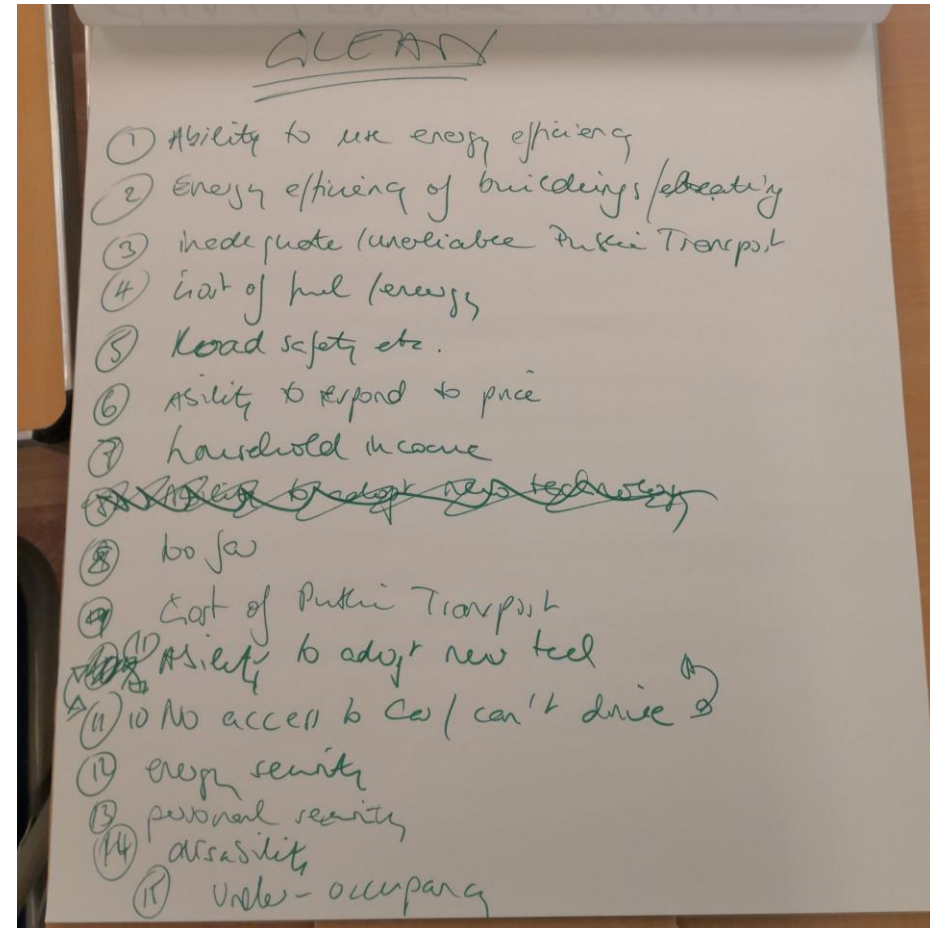 CLEAN
① Ability to use energy efficiency
② Energy efficiency of buildings /
③ inadequate /unreliable Public Transport
④ Cost of fuel /energy
⑤ Road safety etc.
⑥ Ability to respond to price
⑦ household income
Ability to adopt new technology
⑧ too far
⑨ Cost of Public Transport
(11) Ability to adopt new tech
(11) 10 No access to Car / can't drive
⑫ energy security
⑬ personal security
⑭ disability
⑮ Under-occupancy